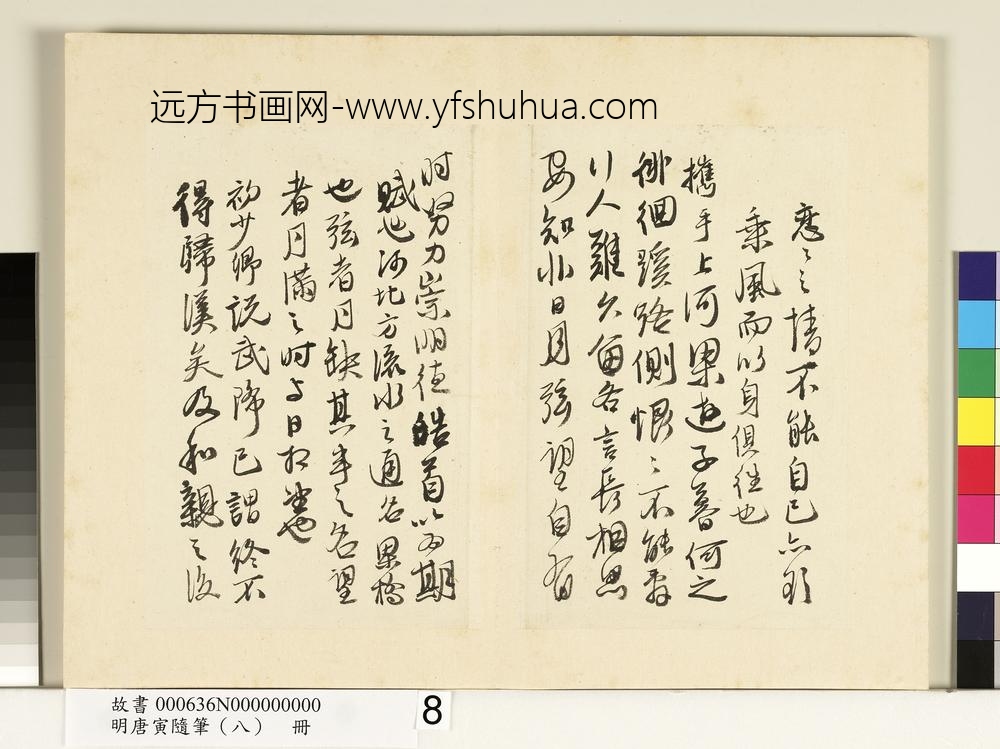 远方书画网-www.yfshuhua.com
戀〻之情不能自已亦欲
乘風而以身俱往也
攜手上河梁遊子暮何之
徘徊蹊路側恨〻不能辭
行人難久留各言長相思
安知非日月弦望自有
時努力崇明德皓首以為期
賦也河北方流水之通名梁橋
也弦者月缺其半之名望
者月滿之時与日相望也
初少卿説武降已謂終不
得歸漢矣及和親之後
故書 000636N000000000
明唐寅隨筆（八） 冊
8